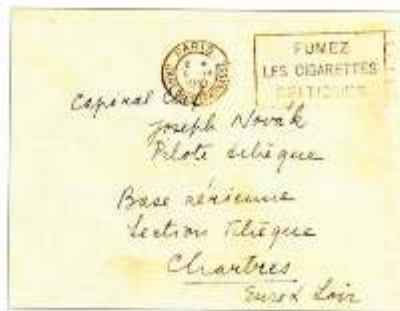 PARIS
FUMEZ
LES CIGARETTES
CELTIQUES
Caporal Chef
Joseph Novák
Pilote tchèque
Base aérienne
Section Tchèque
Chartres
Eure & Loir